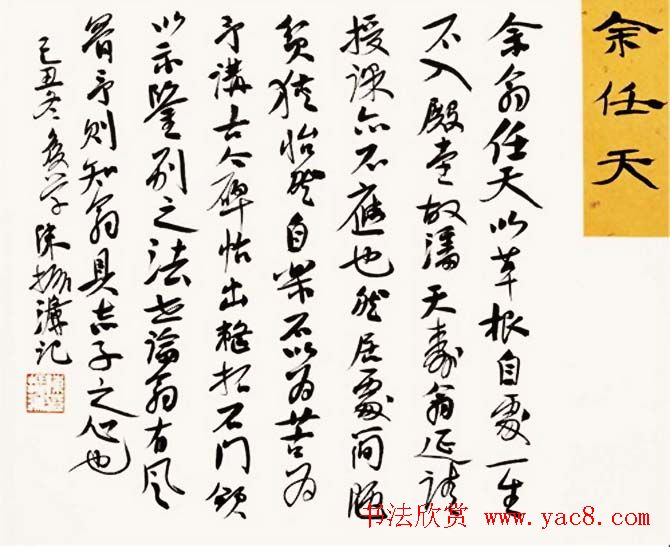 余任天
余翁任天以草根自處一生
不入殿堂故潘天壽翁延請
授課亦不應也然居處簡陋
貧狹怡然自樂不以為苦為
予講古今碑帖出整拓石門頌
以示鑒別之法世論翁有風
骨予則知翁具赤子之心也
己丑冬後學陳振濂記
书法欣赏 www.yac8.com